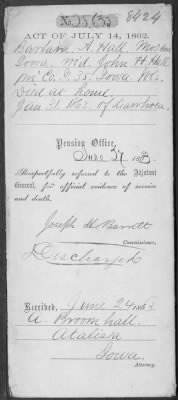 No. 15,(33) 8424
ACT OF JULY 14, 1862.
Barbara A. Hall, Moscow
Iowa. wid John H Hall
pri Co. D. 35. Iowa Vols.
Died at home.
Jan 31. 1863. of diarrhoea
Pension Office,
June 27, 1863.
Respectfully referred to the Adjutant
General, for official evidence of service
and death.
Joseph H Barrett
Commissioner.
Discharged
Received, June 24, 1863.
A. Broomhall.
Atalissa
Iowa.
Attorney.